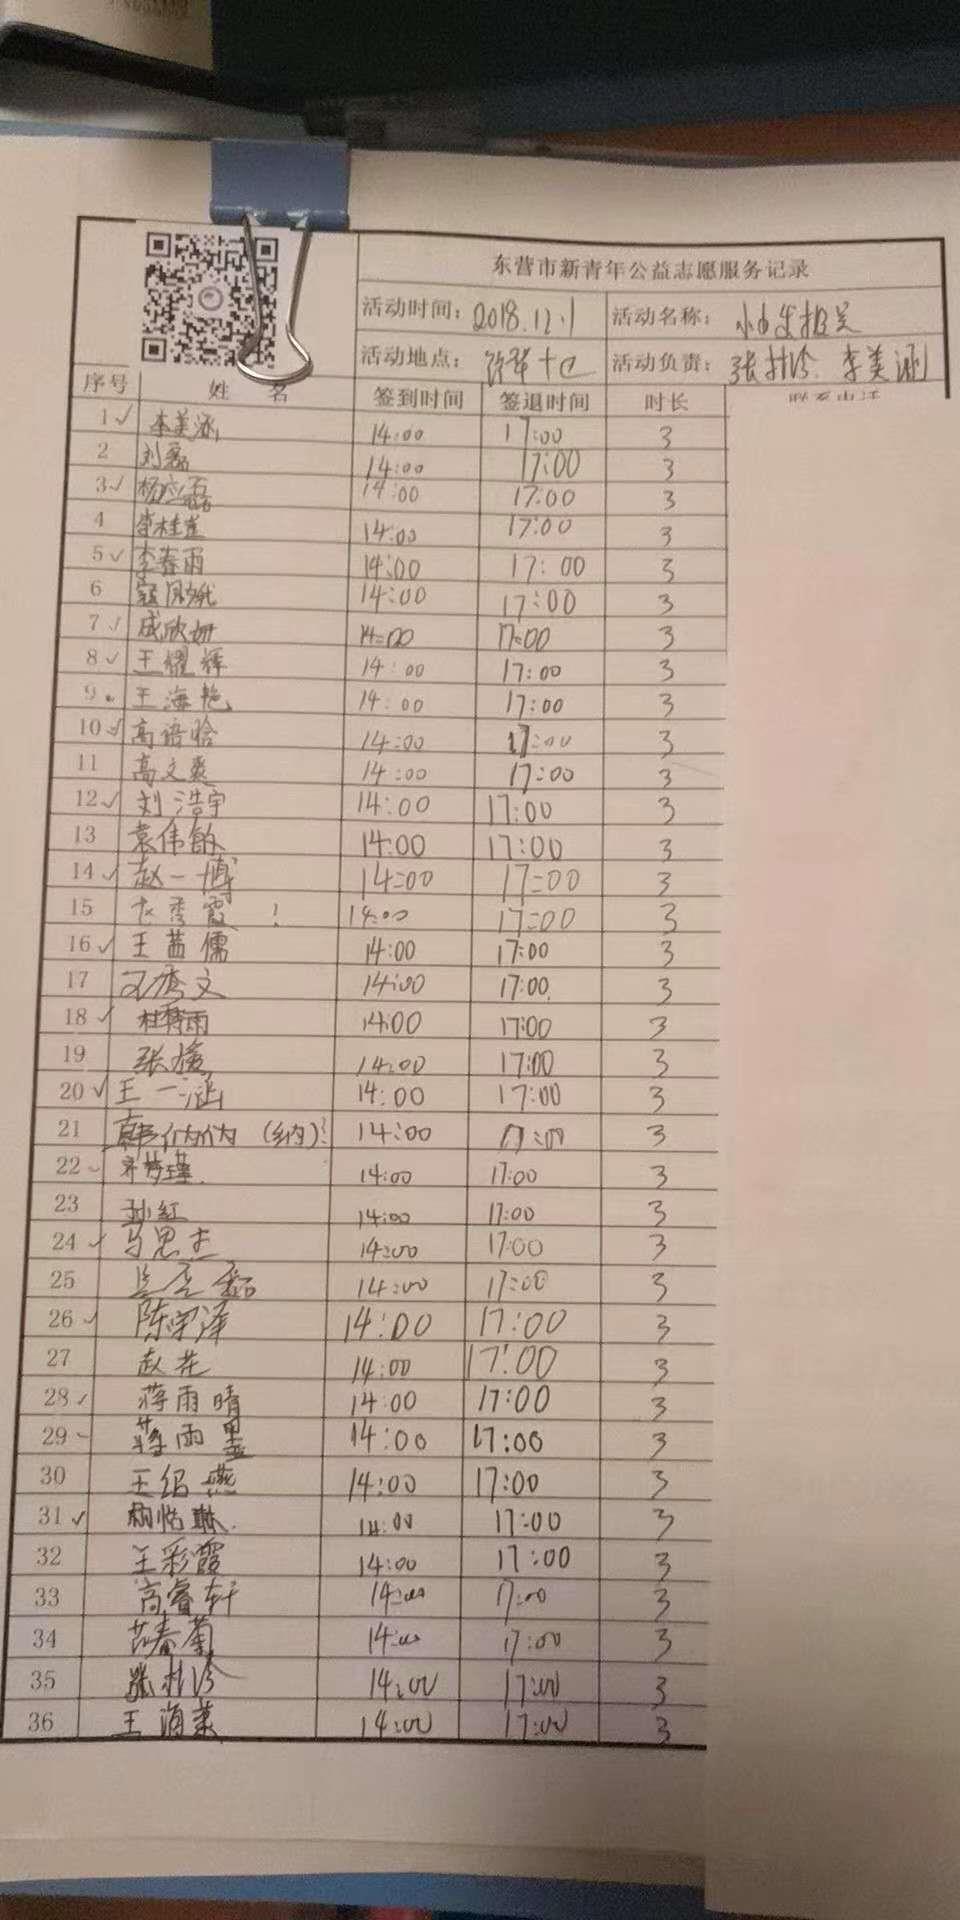 东营市新青年公益志愿服务记录
活动时间: 2018.12.1 活动名称:
活动地点: 活动负责: 张 李美涵
序号 姓 名 签到时间 签退时间 时长
1 ✓ 李美涵 14:00 17:00 3
2 刘磊 14:00 17:00 3
3 ✓ 杨 14:00 17:00 3
4 14:00 17:00 3
5 ✓ 李春雨 14:00 17:00 3
6 14:00 17:00 3
7 ✓ 成欣妍 14:00 17:00 3
8 ✓ 王耀辉 14:00 17:00 3
9 王海艳 14:00 17:00 3
10 ✓ 高语晗 14:00 17:00 3
11 高文爽 14:00 17:00 3
12 ✓ 刘浩宇 14:00 17:00 3
13 袁伟 14:00 17:00 3
14 ✓ 赵一博 14:00 17:00 3
15 秀霞 14:00 17:00 3
16 ✓ 王茜儒 14:00 17:00 3
17 秀文 14:00 17:00 3
18 ✓ 杜 雨 14:00 17:00 3
19 张 14:00 17:00 3
20 ✓ 王一涵 14:00 17:00 3
21 韩 (纳) 14:00 17:00 3
22 14:00 17:00 3
23 孙红 14:00 17:00 3
24 ✓ 马思杰 14:00 17:00 3
25 14:00 17:00 3
26 ✓ 陈宇泽 14:00 17:00 3
27 赵花 14:00 17:00 3
28 ✓ 蒋雨晴 14:00 17:00 3
29 蒋雨墨 14:00 17:00 3
30 王绍燕 14:00 17:00 3
31 ✓ 14:00 17:00 3
32 王彩霞 14:00 17:00 3
33 高睿轩 14:00 17:00 3
34 14:00 17:00 3
35 张 14:00 17:00 3
36 王海 14:00 17:00 3